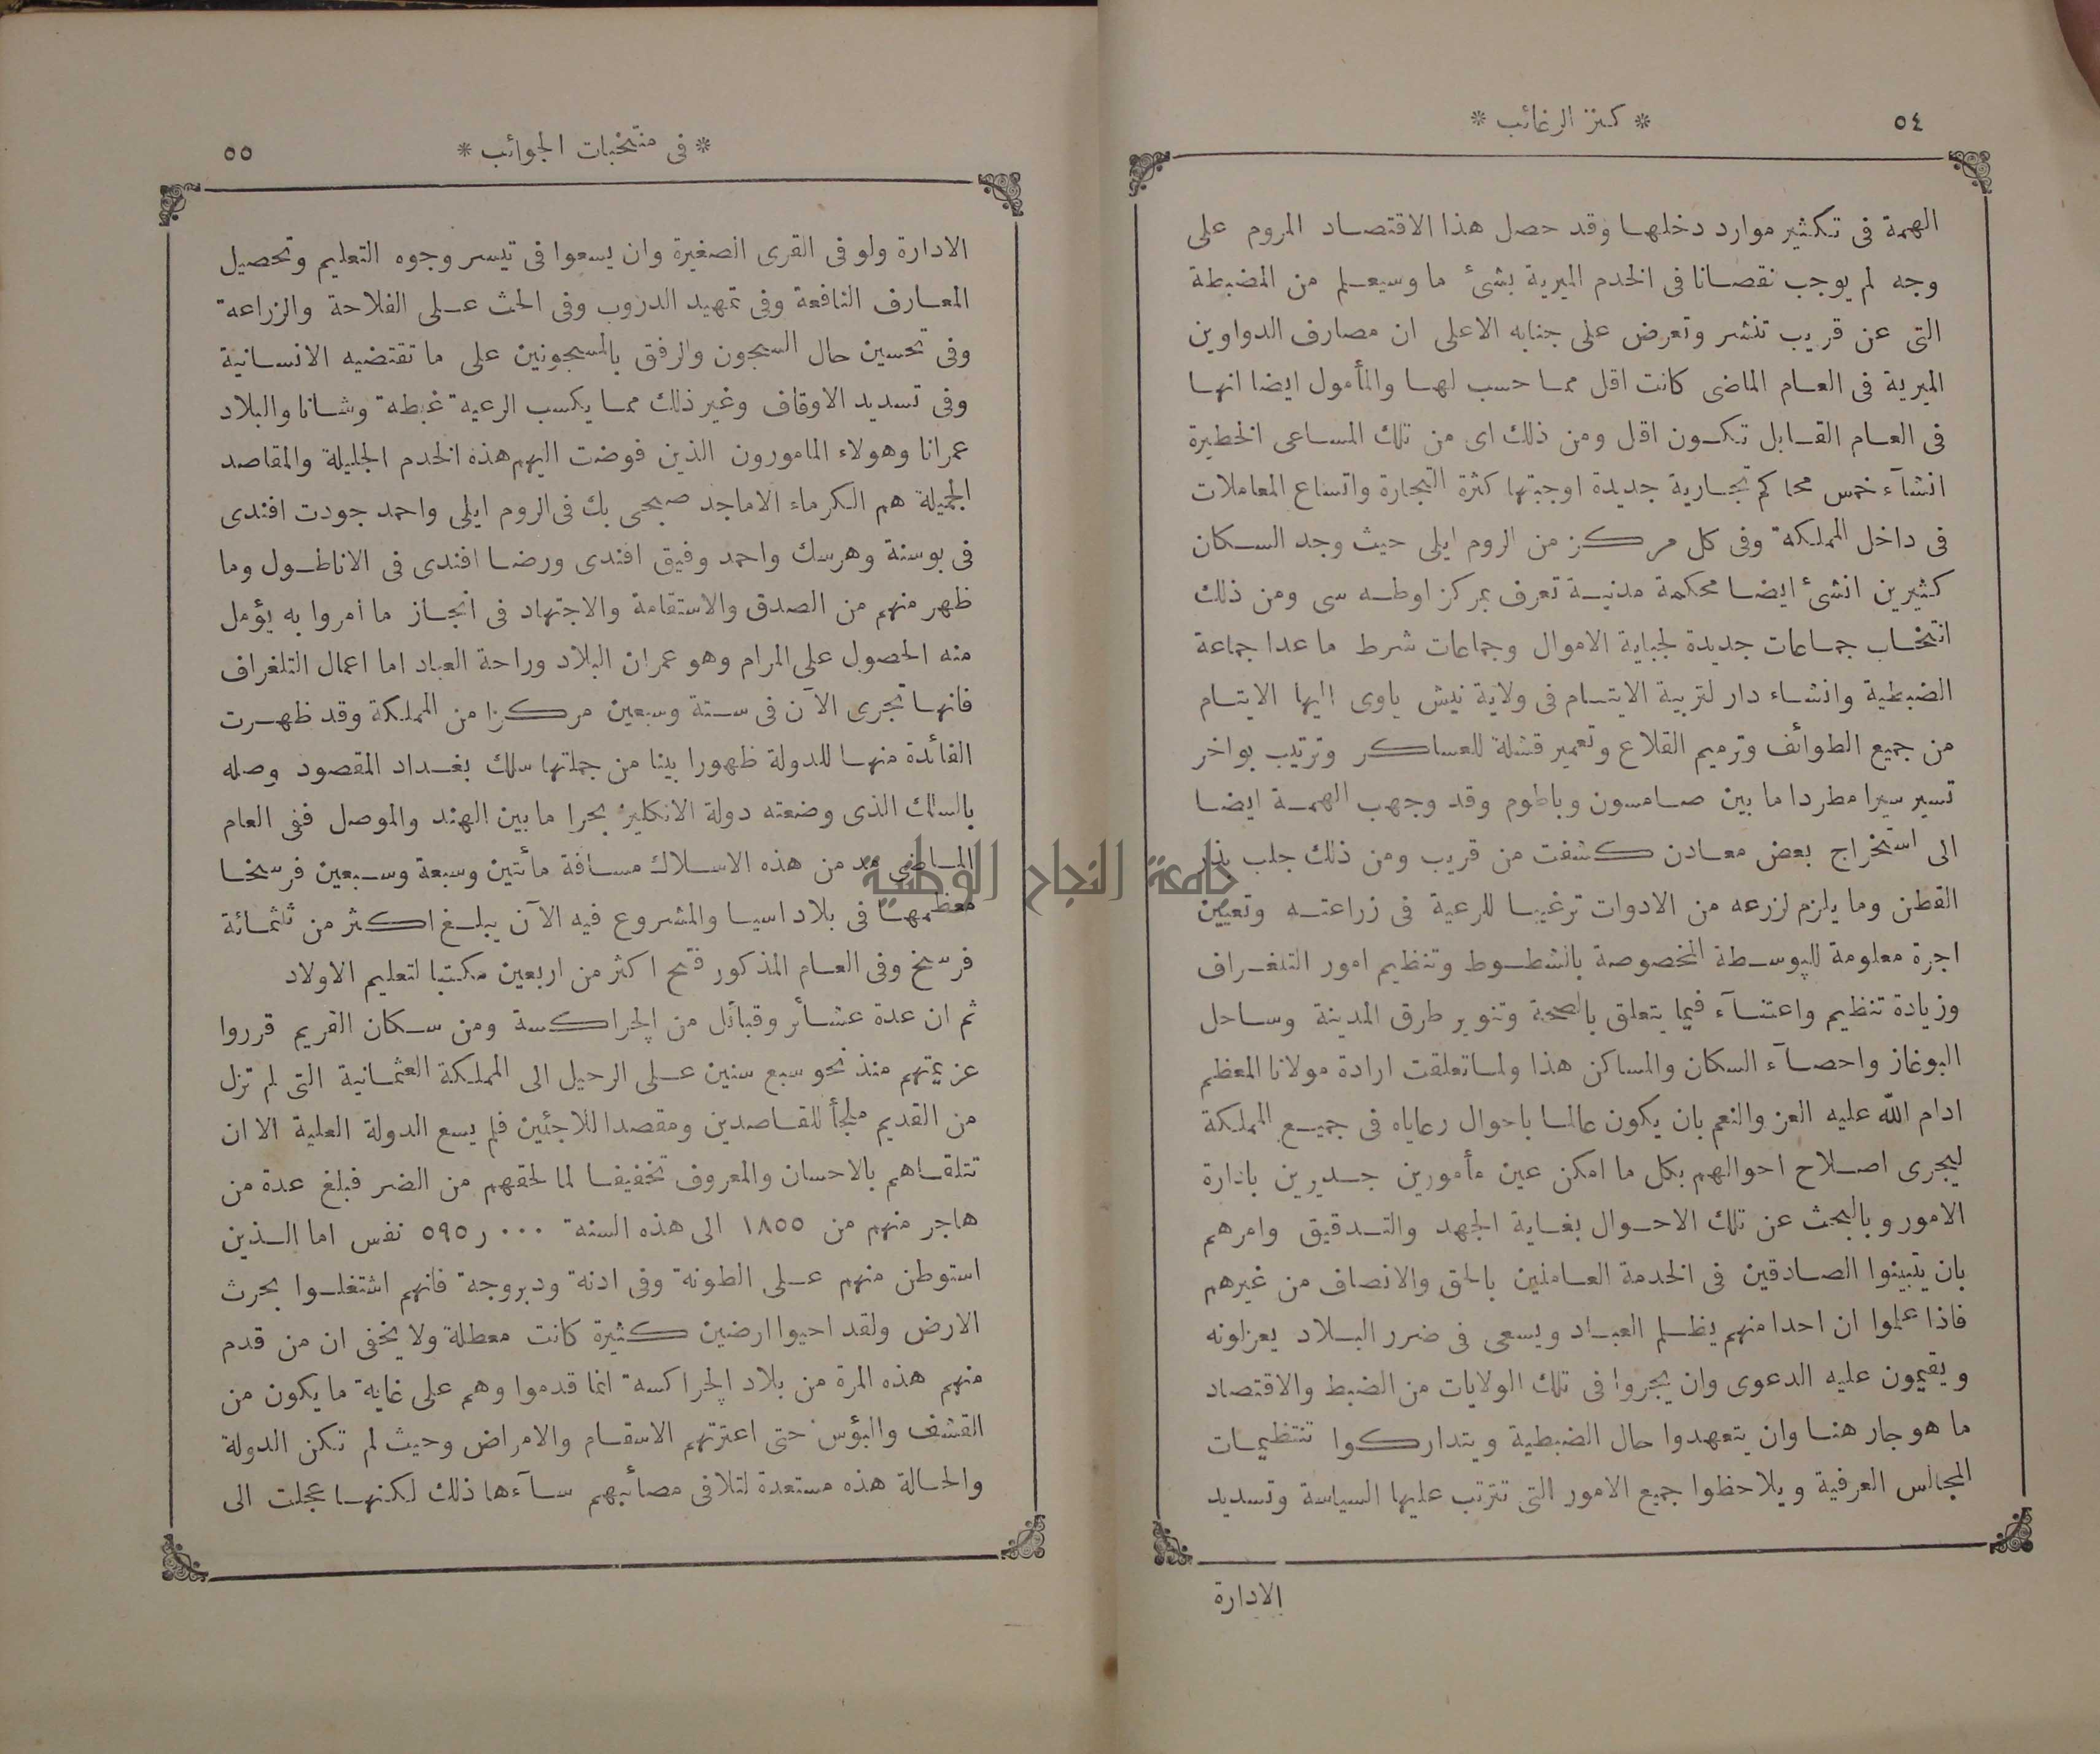 ٥٤
* كنز الرغائب *
الهمة فى تكثير موارد دخلها وقد حصل هذا الاقتصاد المروم على
وجه لم يوجب نقصانا فى الخدم الميرية بشئ ما وسيعلم من المضبطة
التى عن قريب تنشر وتعرض على جنابه الاعلى ان مصارف الدواوين
الميرية فى العام الماضى كانت اقل مما حسب لها والمأمول ايضا انها
فى العام القابل تكون اقل ومن ذلك اى من تلك المساعى الخطيرة
انشآء خمس محاكم تجارية جديدة اوجبتها كثرة التجارة واتساع المعاملات
فى داخل المملكة وفى كل مركز من الروم ايلى حيث وجد السكان
كثيرين انشئ ايضا محكمة مدنية تعرف بمركز اوطه سى ومن ذلك
انتخاب جماعات جديدة لجباية الاموال وجماعات شرط ما عدا جماعة
الضبطية وانشاء دار لتربية الايتام فى ولاية نيش ياوى اليها الايتام
من جميع الطوائف وترميم القلاع وتعمير قشلة للعساكر وترتيب بواخر
تسير سيرا مطردا ما بين صامسون وباطوم وقد وجهب الهمة ايضا
الى استخراج بعض معادن كشفت من قريب ومن ذلك جلب بذر
القطن وما يلزم لزرعه من الادوات ترغيبا للرعية فى زراعته وتعيين
اجرة معلومة للپوسطة المخصوصة بالشطوط وتنظيم امور التلغراف
وزيادة تنظيم واعتنآء فيما يتعلق بالصحة وتنوير طرق المدينة وساحل
البوغاز واحصآء السكان والمساكن هذا ولما تعلقت ارادة مولانا المعظم
ادام الله عليه العز والنعم بان يكون عالما باحوال رعاياه فى جميع المملكة
ليجرى اصلاح احوالهم بكل ما امكن عين مأمورين جديرين بادارة
الامور وبالبحث عن تلك الاحوال بغاية الجهد والتدقيق وامرهم
بان يتبينوا الصادقين فى الخدمة العاملين بالحق والانصاف من غيرهم
فاذا علموا ان احدا منهم يظلم العباد ويسعى فى ضرر البلاد يعزلونه
ويقيمون عليه الدعوى وان يجروا فى تلك الولايات من الضبط والاقتصاد
ما هو جار هنا وان يتعهدوا حال الضبطية ويتداركوا تنتظيمات
المجالس العرفية ويلاحظوا جميع الامور التى تترتب عليها السياسة وتسديد
الادارة
* فى منتخبات الجوائب *
٥٥
الادارة ولو فى القرى الصغيرة وان يسعوا فى تيسر وجوه التعليم وتحصيل
المعارف النافعة وفى تمهيد الدروب وفى الحث على الفلاحة والزراعة
وفى تحسين حال السجون والرفق بالمسجونين على ما تقتضيه الانسانية
وفى تسديد الاوقاف وغير ذلك مما يكسب الرعية غبطة وشانا والبلاد
عمرانا وهولاء المامورون الذين فوضت اليهم هذه الخدم الجليلة والمقاصد
الجميلة هم الكرماء الاماجد صبحى بك فى الروم ايلى واحمد جودت افندى
فى بوسنة وهرسك واحمد وفيق افندى ورضا افندى فى الاناطول وما
ظهر منهم من الصدق والاستقامة والاجتهاد فى انجاز ما امروا به يؤمل
منه الحصول على المرام وهو عمران البلاد وراحة العباد اما اعمال التلغراف
فانها تجرى الآن فى ستة وسبعين مركزا من المملكة وقد ظهرت
الفائدة منها للدولة ظهورا بينا من جملتها سلك بغداد المقصود وصله
بالسلك الذى وضعته دولة الانكليز بحرا ما بين الهند والموصل ففى العام
الماضى مد من هذه الاسلاك مسافة مأتين وسبعة وسبعين فرسخا
معظمها فى بلاد اسيا والمشروع فيه الآن يبلغ اكثر من ثلثمائة
فرسخ وفى العام المذكور فتح اكثر من اربعين مكتبا لتعليم الاولاد
ثم ان عدة عشائر وقبائل من الچراكسة ومن سكان القريم قرروا
عزيمتهم منذ نحو سبع سنين على الرحيل الى المملكة العثمانية التى لم تزل
من القديم ملجأ للقاصدين ومقصدا للاجئين فلم يسع الدولة العلية الا ان
تتلقاهم بالاحسان والمعروف تخفيفا لما لحقهم من الضر فبلغ عدة من
هاجر منهم من ١٨٥٥ الى هذه السنة ٥٩٥ر٠٠٠ نفس اما الذين
استوطن منهم على الطونة وفى ادنة ودبروجة فانهم اشتغلوا بحرث
الارض ولقد احيوا ارضين كثيرة كانت معطلة ولا يخفى ان من قدم
منهم هذه المرة من بلاد الچراكسة انما قدموا وهم على غاية ما يكون من
القشف والبؤس حتى اعترتهم الاسقام والامراض وحيث لم تكن الدولة
والحالة هذه مستعدة لتلافى مصأبهم سآءها ذلك لكنها عجلت الى
جامعة النجاح الوطنية